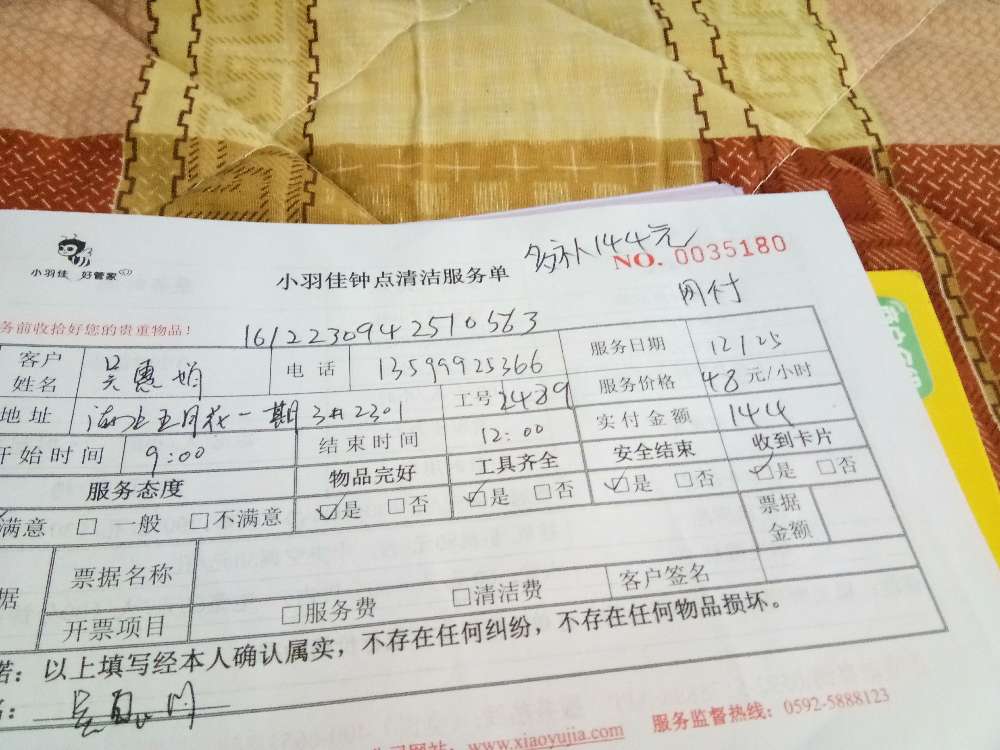 小羽佳 好管家
小羽佳钟点清洁服务单
多补144元
NO. 0035180
网付
务前收拾好您的贵重物品!
1612230942510563
客户姓名 吴惠娟 电话 13599925366 服务日期 12/25
地址 湖北五月花一期3#2301 工号 2489 服务价格 48元/小时
开始时间 9:00 结束时间 12:00 实付金额 144
服务态度 物品完好 工具齐全 安全结束 收到卡片
满意 □ 一般 □不满意 ☑是 □否 ☑是 □否 ☑是 □否 ☑是 □否
据 票据名称 票据金额
开票项目 □服务费 □清洁费 客户签名
诺:以上填写经本人确认属实,不存在任何纠纷,不存在任何物品损坏。
网站:www.xiaoyujia.com 服务监督热线:0592-5888123